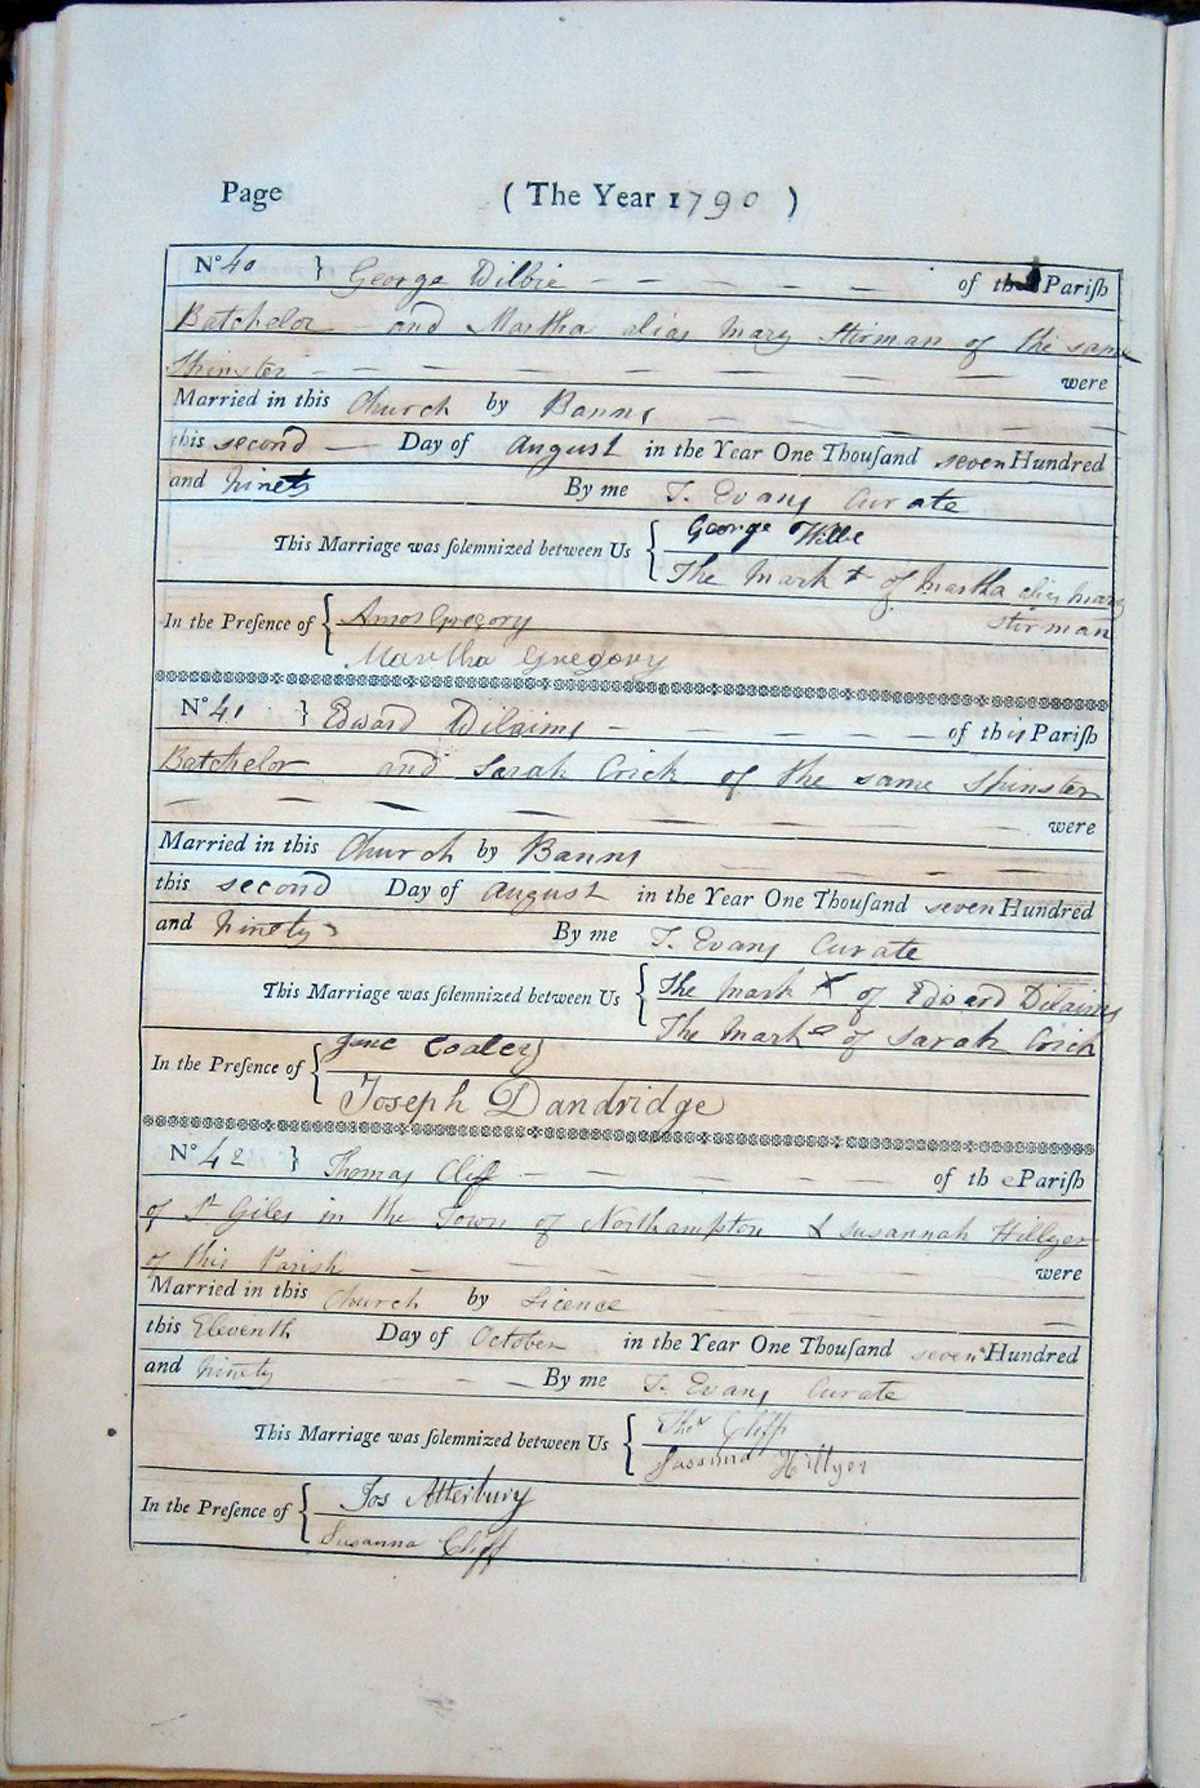 Page ( The Year 1790 )
No 40 } George Wilbie of this Pariſh
Batchelor and Martha alias Mary Stirman of the same
Spinster were
Married in this Church by Banns
this second Day of August in the Year One Thouſand seven Hundred
and Ninety By me T. Evans Curate
This Marriage was ſolemnized between Us { George Wilbe
The Mark + of Martha alias Mary
Stirman
In the Preſence of { Amos Gregory
Martha Gregory
No 41 } Edward Dilaims of this Pariſh
Batchelor and Sarah Crick of the same Spinster
were
Married in this Church by Banns
this second Day of August in the Year One Thouſand seven Hundred
and Ninety By me T. Evans Curate
This Marriage was ſolemnized between Us { The Mark X of Edward Dilaims
The Mark o of Sarah Crick
In the Preſence of { Jane Coaley
Joseph Dandridge
No 42 } Thomas Cliff of the Pariſh
of St Giles in the Town of Northampton & Susannah Hillyer
of this Parish were
Married in this Church by Licence
this Eleventh Day of October in the Year One Thouſand seven Hundred
and Ninety By me T. Evans Curate
This Marriage was ſolemnized between Us { Thos Cliff
Susanna Hillyer
In the Preſence of { Jos Atterbury
Susanna Cliff